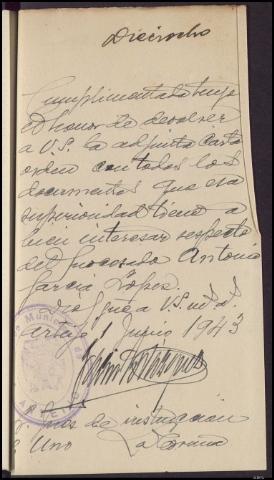 Dieciocho
Cumplimentada tengo
el honor de devolver
a V.S. la adjunta carta
orden con todos los
documentos que esa
superioridad tiene a
bien interesar respecto
del procesado Antonio
García López.
Dios gue a V.S. m. a.
Arteijo 1 Junio 1943
Juez de instrucción
Uno La Coruña